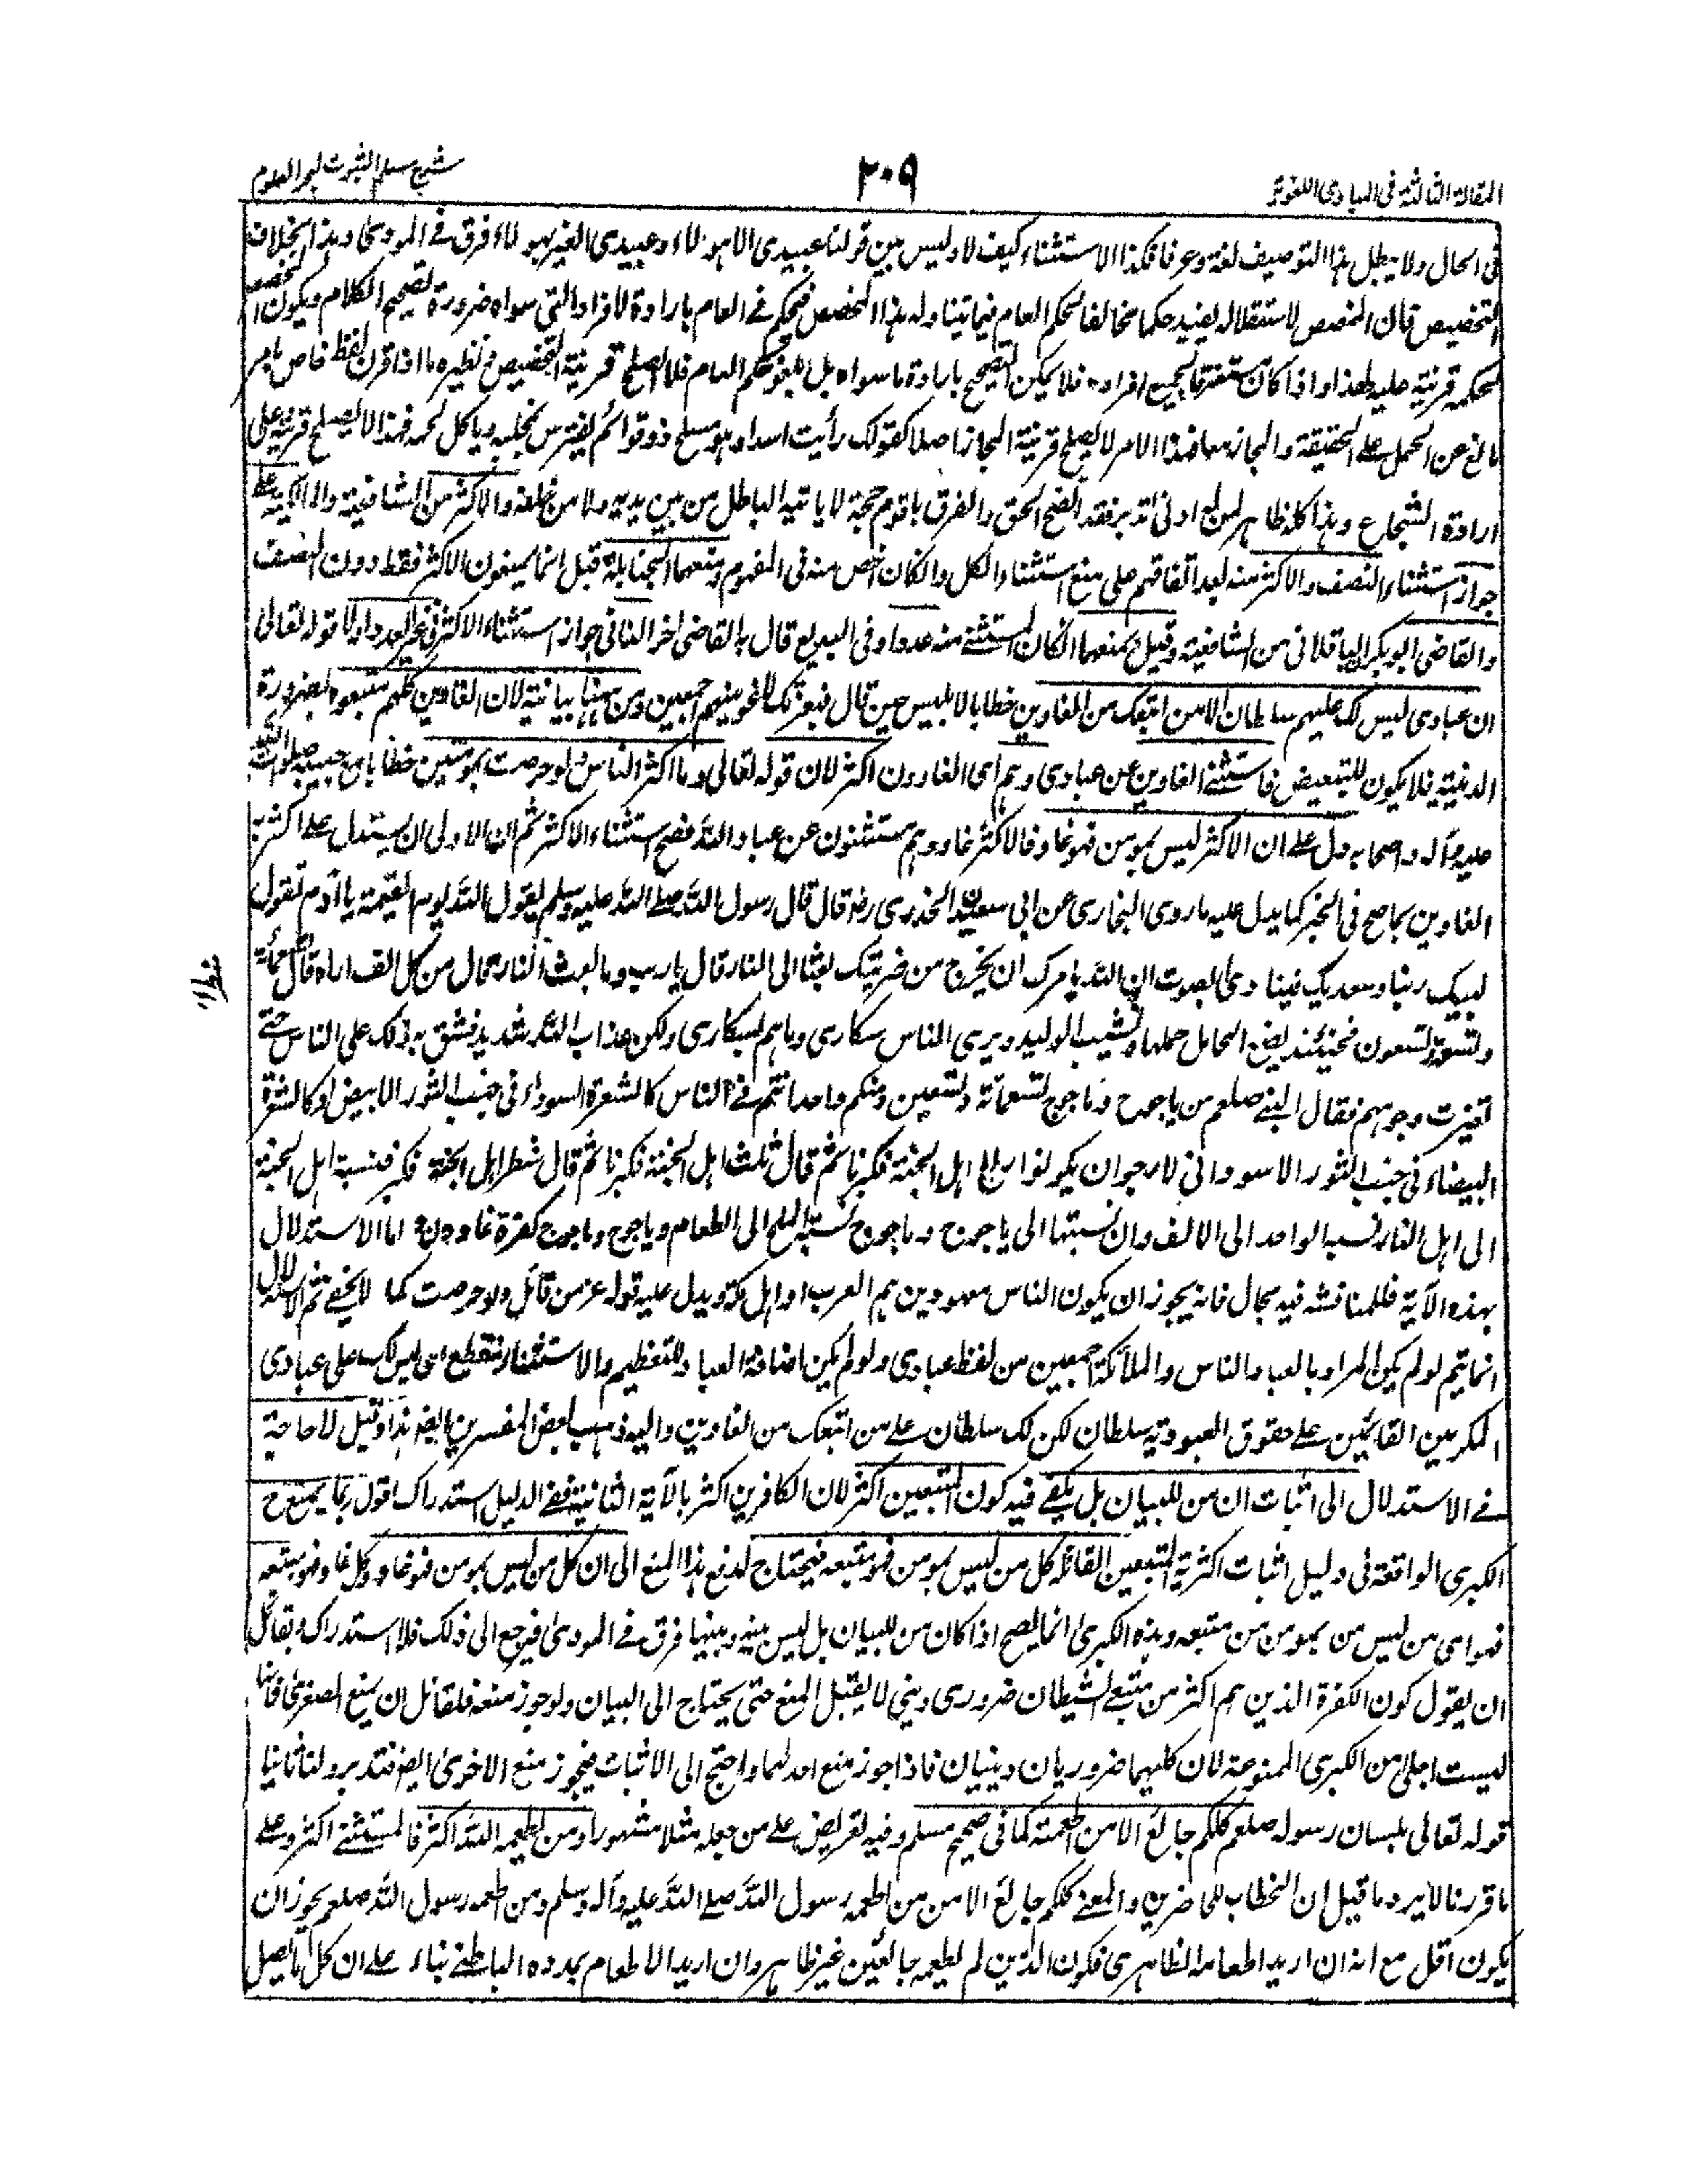 المقالة الثالثة فى المبادى اللغوية
٢٠٩
شرح مسلم الثبوت لبحر العلوم
فى الحال ولا يبطل هذا التوصيف لغة وعرفا فكذا الاستثناء كيف لا وليس بين قولنا عبيدى الا هولاء وعبيدى الغير هولاء فرق فے المودى وهذا بخلاف
التخصيص فان المخصص لاستقلاله يفيد حكما مخالفا لحكم العام فيما يتناوله هذا المخصص فيحكم فے العام بارادة الافراد التى سواه ضرورة تصحيح الكلام ويكون المخصص
بحكمه قرينة عليه هذا واذا كان مستغرقا لجميع افراده فلا يمكن التصحيح بارادة ما سواه بل يلغو حكم العام فلا يصلح قرينة التخصيص ونظيره ما اذا قرن لفظ خاص بامر
مانع عن الحمل على الحقيقة والمجاز معا فهذا الامر لا يصلح قرينة المجاز اصلا كقولك رأيت اسدا وهو مسلح ذو قوائم يفترس بمخلبه وياكل لحمه فهذا لا يصلح قرينة على
ارادة الشجاع وهذا كله ظاهر لمن له ادنى تدبر فقد اتضح الحق والفرق باقوم حجة لا ياتيه الباطل من بين يديه ولا من خلفه والاكثر من الشافعية والمالكية على
جواز استثناء النصف والاكثر منه بعد اتفاقهم على منع استثناء الكل والكان اخص منه فى المفهوم ومنعهما الحنابلة قيل انما يمنعون الاكثر فقط دون النصف
والقاضى ابو بكر الباقلانى من الشافعية وقيل يمنعهما انكان المستثنى منه عددا وفى البديع قال به القاضى اخرا لنا فى جواز استثناء الاكثر فى غير العدد اولا قوله تعالى
ان عبادى ليس لك عليهم سلطان الا من اتبعك من الغاوين خطابا لابليس حين قال فبعزتك لاغوينهم اجمعين ومن ههنا بيانية لان الغاوين كلهم متبعوه بضرورة
الدينية فلا يكون للتبعيض فاستثنے الغاوين عن عبادى وهم اى الغاوون اكثر لان قوله تعالى وما اكثر الناس ولو حرصت بمومنين خطابا مع حبيبه صلوات الله
عليه وآله واصحابه دل على ان الاكثر ليس بمومن فهو غاو فالاكثر غاو وهم مستثنون عن عباد الله فصح استثناء الاكثر ثم ان الاولى ان يستدل على اكثرية
الغاوين بما صح فى الخبر كما يدل عليه ما روى البخارى عن ابى سعيد الخدرى رض قال قال رسول الله صلے الله عليه وسلم يقول الله يوم القيمة يا آدم فيقول
لبيك ربنا وسعديك فينادى بصوت ان الله يامرك ان تخرج من ذريتك بعثا الى النار قال يارب وما بعث النار قال من كل الف اراه قال تسعمائة
وتسعة وتسعون فحينئذ يضع الحامل حملها ويشيب الوليد ويرى الناس سكارى وما هم بسكارى ولكن عذاب الله شديد فشق ذلك على الناس حتے
تغيرت وجوههم فقال النبے صلعم من ياجوج وماجوج تسعمائة وتسعين ومنكم واحد انتم فے الناس كالشعرة السوداء فى جنب الثور الابيض او كالشعرة
البيضاء فى جنب الثور الاسود وانى لارجو ان يكونوا ربع اهل الجنة فكبرنا ثم قال ثلث اهل الجنة فكبرنا ثم قال شطر اهل الجنة فكبرنا فنسبة اهل الجنة
الى اهل النار نسبة الواحد الى الالف وان نسبتها الى ياجوج وماجوج نسبة الملح الى الطعام وياجوج وماجوج كفرة غاوون اما الاستدلال
بهذه الآية فللمناقشة فيه مجال فانه يجوز ان يكون الناس معهودين هم العرب او اهل مكة ويدل عليه قوله عز من قائل ولو حرصت كما لا يخفے ثم الاستدلال
انما يتم لو لم يكن المراد بالعباد الناس والملائكة اجمعين من لفظ عبادى ولو لم يكن اضافة العباد للتعظيم والاستثناء منقطع اى ليس لك على عبادى
المكرمين القائمين على حقوق العبودية سلطان لكن لك سلطان على من اتبعك من الغاوين واليه ذهب بعض المفسرين ايضا هذا وقيل لا حاجة
فے الاستدلال الى اثبات ان من للبيان بل يكفے فيه كون المتبعين اكثر لان الكافرين اكثر بالآية الثانية ففے الدليل استدراك اقول ربما يمنع ح
الكبرى الواقعة فى دليل اثبات اكثرية المتبعين القائلة كل من ليس بمومن فهو متبعه فيحتاج لدفع هذا المنع الى ان كل من ليس بمومن فهو غاو وكل غاو فهو متبعه
فهو اى من ليس من بمومن من متبعه وهذه الكبرى انما يصح اذا كان من للبيان بل ليس بينه وبينها فرق فے المودى فيرجع الى ذلك فلا استدراك ولقائل
ان يقول كون الكفرة الذين هم اكثر من متبعے الشيطان ضرورى دينى لا يقبل المنع حتى يحتاج الى البيان ولو جوز منعه فلقائل ان يمنع الصغرى فانها
ليست اجلى من الكبرى الممنوعة لان كليهما ضروريان دينيان فاذا جوز منع احدهما واحتج الى الاثبات فيجوز منع الاخرى ايضا فتدبر ولنا ثانيا
قوله تعالى بلسان رسوله صلعم كلكم جائع الا من اطعمته كما فى صحيح مسلم وفيه تعريض على من جعله مثلا مشهورا ومن اطعمه الله اكثر فالمستثنے اكثر وعلے
ما قررنا لا يرد ما قيل ان الخطاب للحاضرين والمعنے كلكم جائع الا من اطعمه رسول الله صلے الله عليه وآله وسلم ومن اطعمه رسول الله صلعم يجوز ان
يكون اقل مع انه ان اريد اطعامه الظاهرى فكون الذين لم يطعمه جائعين غير ظاهر وان اريد الاطعام بمدده الباطنے بناء على ان كل ما يصل